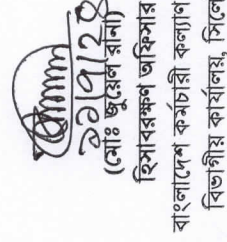 ১১|৭|২৪
(মোঃ জুয়েল রানা)
হিসাবরক্ষণ অফিসার
বাংলাদেশ কর্মচারী কল্যাণ
বিভাগীয় কার্যালয়, সিলে